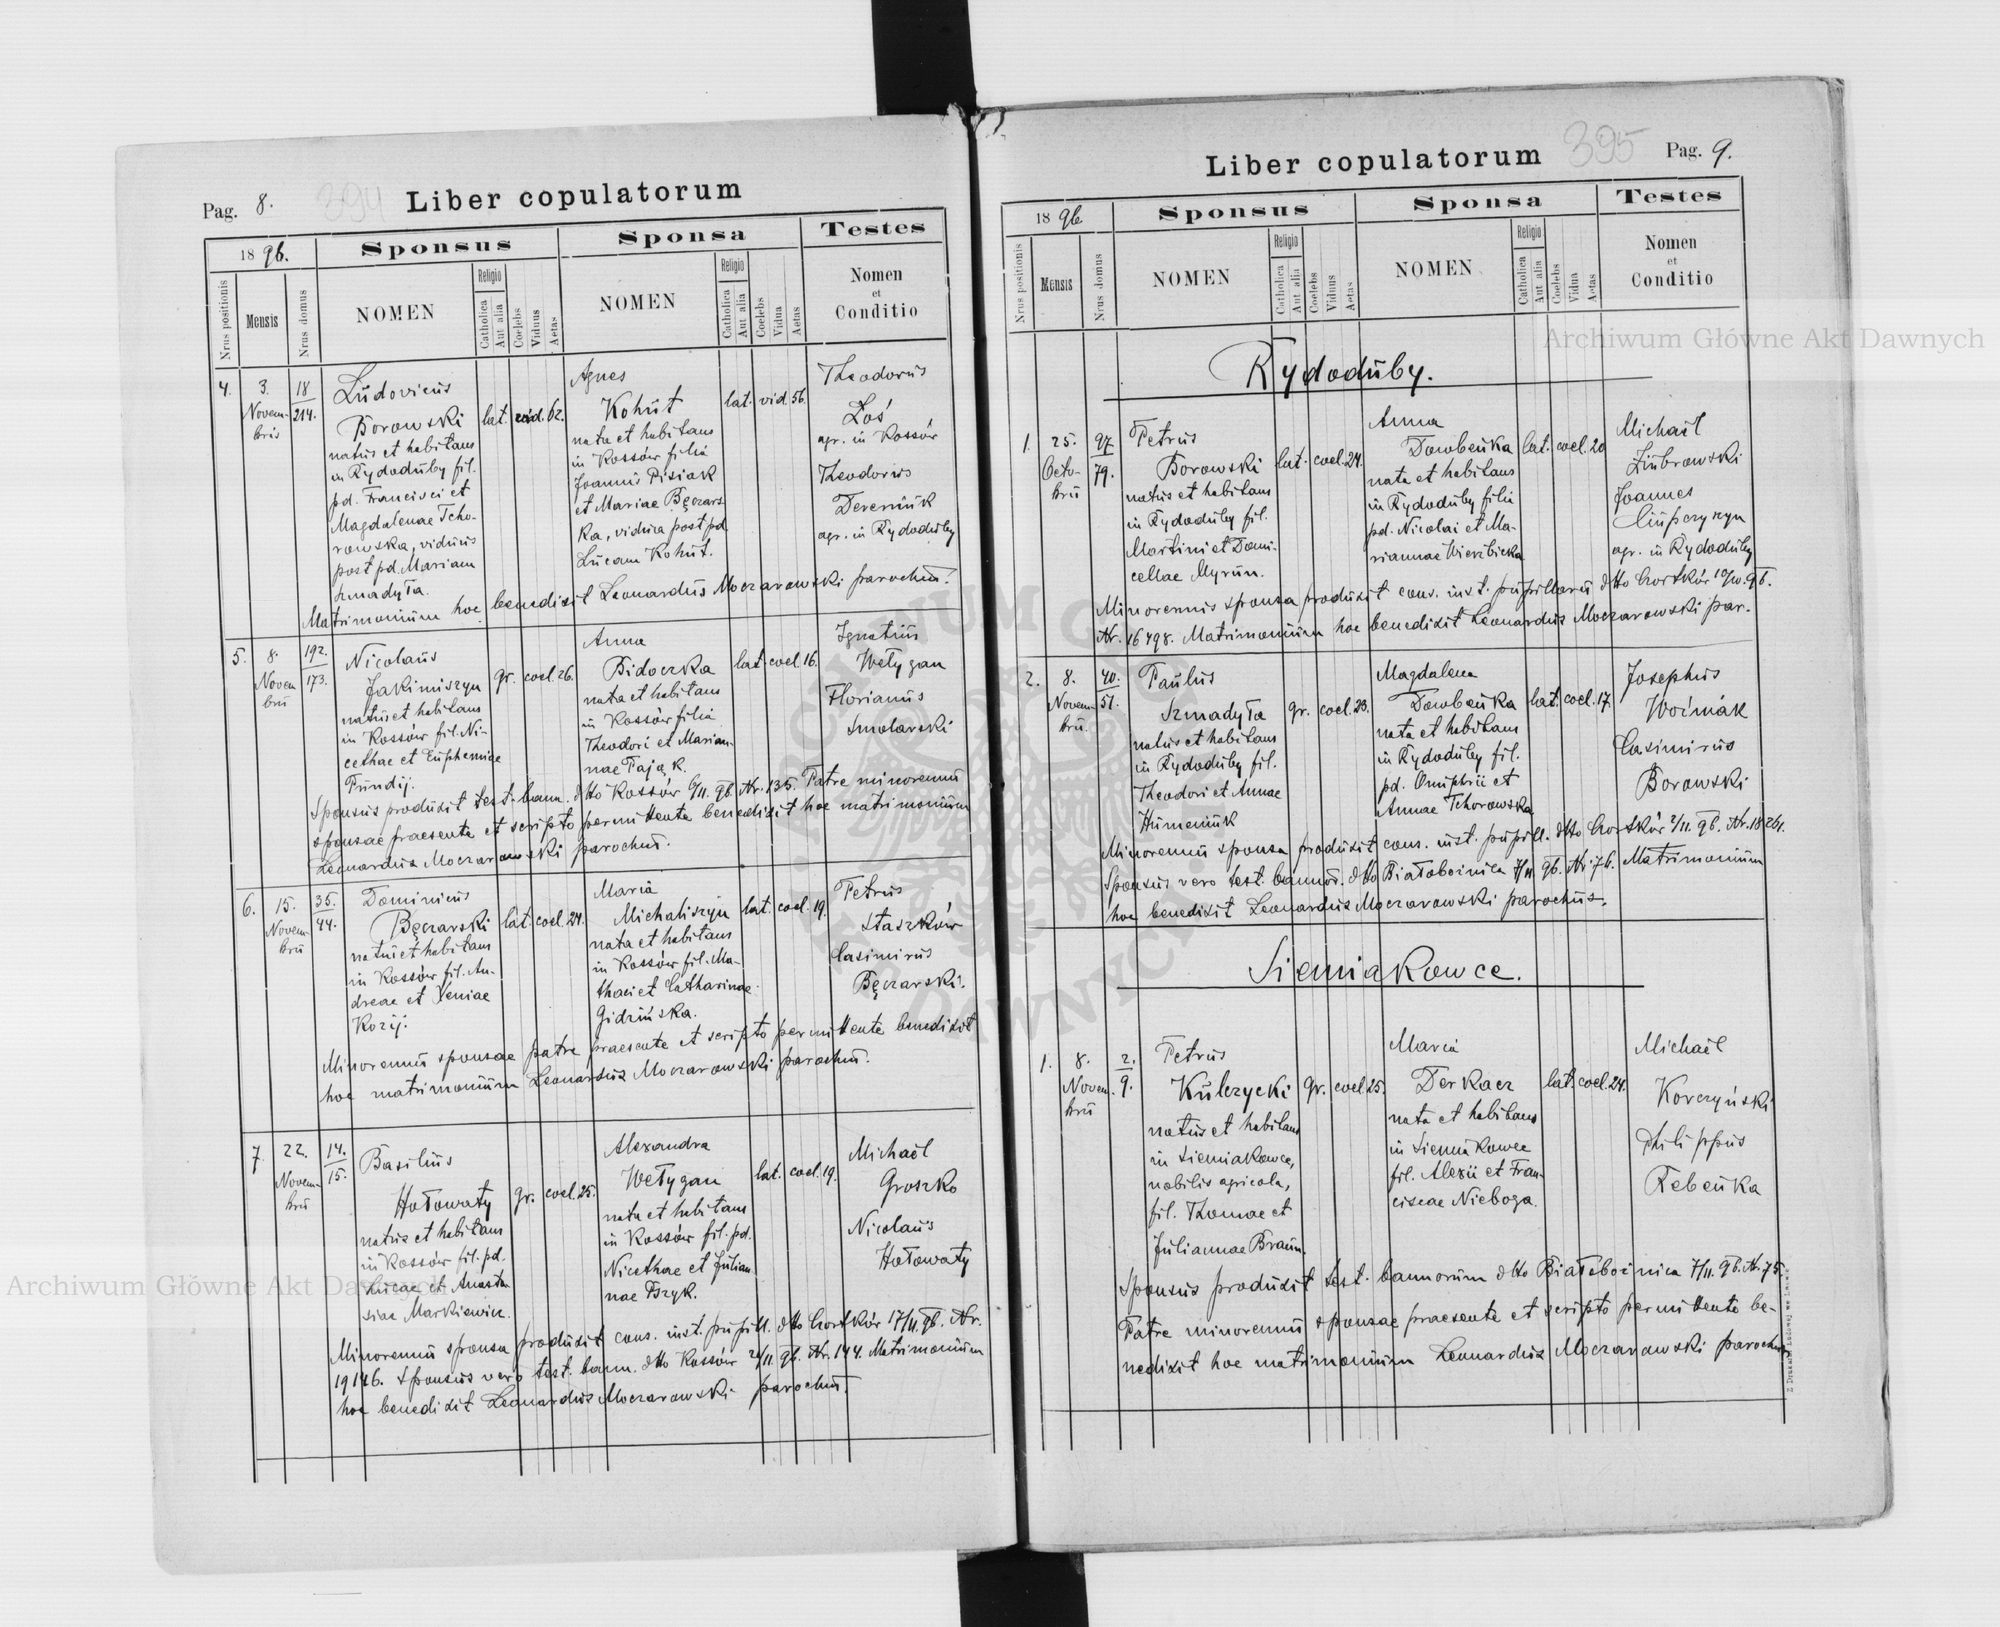 Pag. 8.
394
Liber copulatorum
1896.
Sponsus
Sponsa
Testes
Nrus positionis
Mensis
Nrus domus
NOMEN
Religio
Catholica
Aut alia
Coelebs
Viduus
Aetas
NOMEN
Religio
Catholica
Aut alia
Coelebs
Vidua
Aetas
Nomen
et
Conditio
4.
3.
Novem-
bris
18
214.
Ludovicus
Borowski
natus et habitans
in Rydoduby fil.
pd. Francisci et
Magdalenae Tcho-
rowska, viduus
post pd. Mariam
Szmadyła.
lat. vid. 62.
Agnes
Kohut
nata et habitans
in Kossów filia
Joannis Pisiak
et Mariae Bęczars
ka, vidua post pd.
Lucam Kohut.
lat. vid. 56.
Theodorus
Łoś
agr. in Kossów
Theodorus
Dereniuk
agr. in Rydoduby
Matrimonium hoc benedixit Leonardus Moczarowski parochus.
5.
8.
Novem
bris
192.
173.
Nicolaus
Jakimiszyn
natus et habitans
in Kossów fil. Ni-
cethae et Euphemiae
Fundij.
gr. coel. 26.
Anna
Bidoczka
nata et habitans
in Kossów filia
Theodori et Marian-
nae Pająk.
lat. coel. 16.
Ignatius
Wełygan
Florianus
Smolarski
Sponsus produxit test. bann. dtto Kossów 6/11. 96. Nr. 135. Patre minorennis
sponsae praesente et scripto permittente benedixit hoc matrimonium
Leonardus Moczarowski parochus.
6.
15.
Novem
bris
35.
44.
Dominicus
Bęczarski
natus et habitans
in Kossów fil. An-
dreae et Xeniae
Kozij.
lat. coel. 24.
Maria
Michaliszyn
nata et habitans
in Kossów fil. Ma-
thaei et Catharinae
Gidzińska.
lat. coel. 19.
Petrus
Staszków
Casimirus
Bęczarski.
Minorennis sponsae patre praesente et scripto permittente benedixit
hoc matrimonium Leonardus Moczarowski parochus.
7.
22.
Novem-
bris
14.
15.
Basilius
Hołowaty
natus et habitans
in Kossów fil. pd.
Lucae et Anasta
siae Markiewicz.
gr. coel. 25.
Alexandra
Wełygan
nata et habitans
in Kossów fil. pd.
Nicethae et Julian
nae Bzyk.
lat. coel. 19.
Michaël
Groszko
Nicolaus
Hołowaty
Minorennis sponsa produxit cons. inst. pupill. dtto Czortków 17/11. 96. Nr.
19146. Sponsus vero test. bann. dtto Kossów 21/11. 96. Nr. 144. Matrimonium
hoc benedixit Leonardus Moczarowski parochus.
395
Liber copulatorum
Pag. 9.
1896
Sponsus
Sponsa
Testes
Nrus positionis
Mensis
Nrus domus
NOMEN
Religio
Catholica
Aut alia
Coelebs
Viduus
Aetas
NOMEN
Religio
Catholica
Aut alia
Coelebs
Vidua
Aetas
Nomen
et
Conditio
Rydoduby.
1.
25.
Octo-
bris
97
79.
Petrus
Borowski
natus et habitans
in Rydoduby fil.
Martini et Domi-
cellae Myrun.
lat. coel. 24.
Anna
Dowbeńka
nata et habitans
in Rydoduby filia
pd. Nicolai et Ma-
riannae Wierzbicka
lat. coel. 20
Michaël
Zubrowski
Joannes
agr. in Rydoduby
Minorennis sponsa produxit cons. inst. pupillaris dtto Czortków 10/10. 96.
Nr. 16498. Matrimonium hoc benedixit Leonardus Moczarowski par.
2.
8.
Novem-
bris.
40.
51.
Paulus
Szmadyła
natus et habitans
in Rydoduby fil.
Theodori et Annae
Humeniuk
gr. coel. 23.
Magdalena
Dowbeńka
nata et habitans
in Rydoduby fil.
pd. Onuphrii et
Annae Tchorowska
lat. coel. 17.
Josephus
Woźniak
Casimirus
Borowski
Minorennis sponsa produxit cons. inst. pupill. dtto Czortków 2/11. 96. Nr. 18261.
Sponsus vero test. bannor. dtto Białobożnica 7/11. 96. Nr. 76. Matrimonium
hoc benedixit Leonardus Moczarowski parochus.
Siemiakowce.
1.
8.
Novem-
bris
2.
9.
Petrus
Kulczycki
natus et habitans
in Siemiakowce,
nobilis agricola,
fil. Thomae et
Juliannae Braun.
gr. coel. 25.
Maria
Derkacz
nata et habitans
in Siemiakowce
fil. Alexii et Fran-
ciscae Nieboga.
lat. coel. 24.
Michaël
Korczyński
Philippus
Rebeńka
Sponsus produxit test. bannorum dtto Białobożnica 7/11. 96. Nr. 75.
Patre minorennis sponsae praesente et scripto permittente be-
nedixit hoc matrimonium Leonardus Moczarowski parochus
Archiwum Główne Akt Dawnych
Archiwum Główne Akt Dawnych